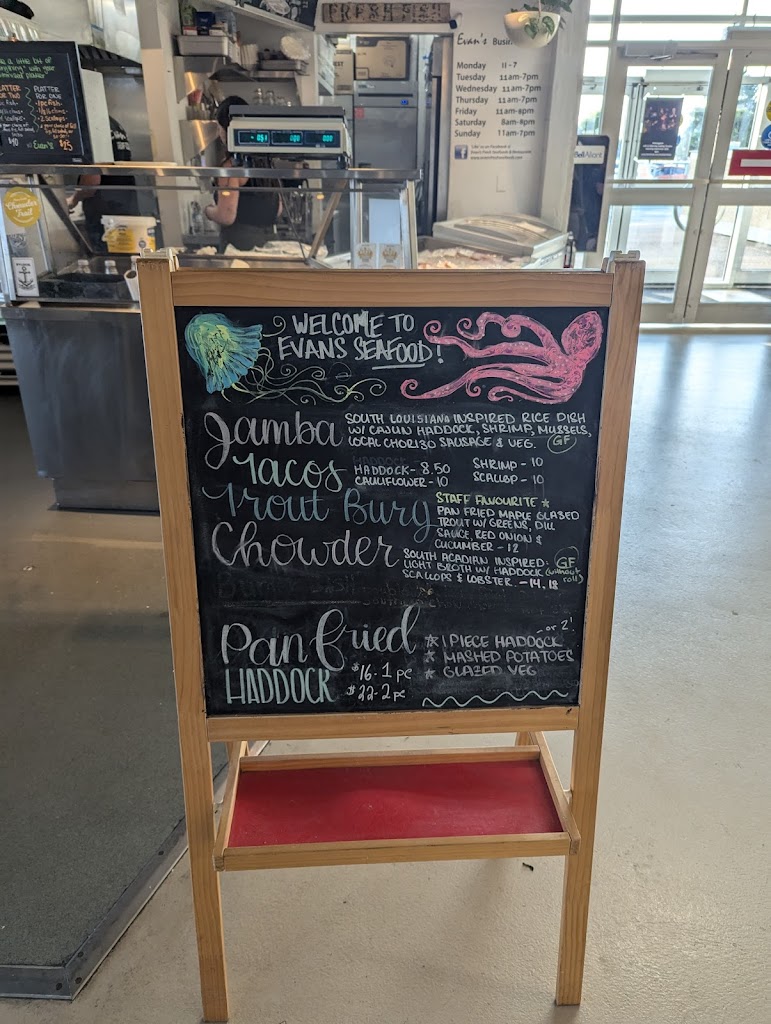 FRESH FISH
Evan's Busin
Monday 11-7
Tuesday 11am-7pm
Wednesday 11am-7pm
Thursday 11am-7pm
Friday 11am-7pm
Saturday 8am-8pm
Sunday 11am-7pm
PLATTER
FOR ONE
$25
Chowder
Trail
WELCOME TO
EVANS SEAFOOD!
Jamba
SOUTH LOUISIANA INSPIRED RICE DISH
W/ CAJUN HADDOCK, SHRIMP, MUSSELS,
LOCAL CHORIZO SAUSAGE & VEG. GF
Tacos
HADDOCK - 8.50 SHRIMP - 10
CAULIFLOWER - 10 SCALLOP - 10
Trout Burg
STAFF FAVOURITE *
PAN FRIED MAPLE GLAZED
TROUT W/ GREENS, DILL
SAUCE, RED ONION &
CUCUMBER - 12
Chowder
SOUTH ACADIAN INSPIRED: GF
LIGHT BROTH W/ HADDOCK (without
SCALLOPS & LOBSTER. - 14, 18 roll)
Pan fried
HADDOCK
$16 - 1 pc
$22 - 2 pc
- or 2'
* 1 PIECE HADDOCK
* MASHED POTATOES
* GLAZED VEG